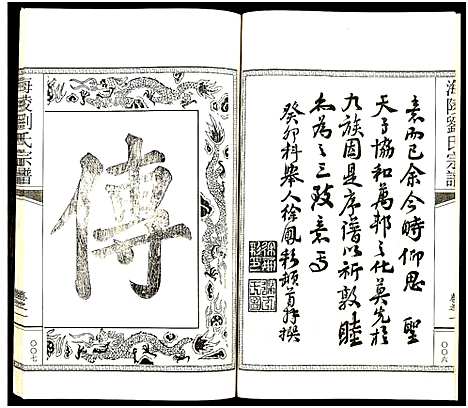 海陵劉氏宗譜
卷之一
〇〇六
意而已余今時仰思 聖
天子協和萬邦之化莫先於
九族因是序譜以祈敦睦
爰為之三致意焉
癸卯科舉人徐鳳彩頓首拜撰
傳
海陵劉氏宗譜
〇〇七